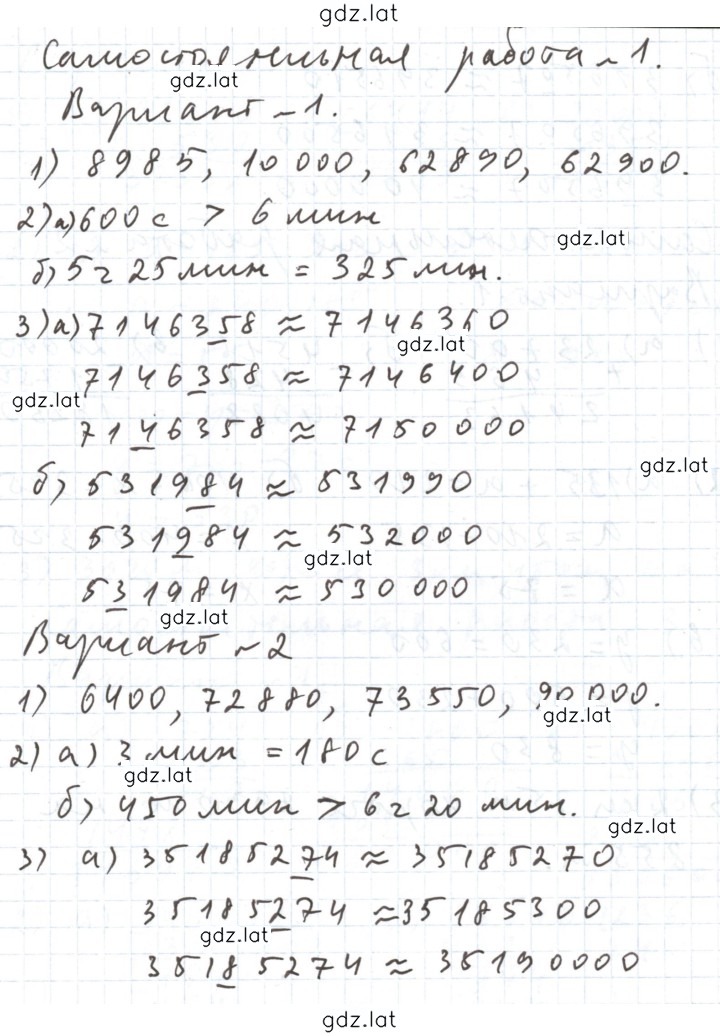 gdz.lat
Самостоятельная работа ~ 1.
gdz.lat
Вариант ~ 1.
1) 8985, 10 000, 62890, 62900.
2) а) 600 с > 6 мин
gdz.lat
б) 5 ч 25 мин = 325 мин.
3) а) 7146358 ≈ 7146360
gdz.lat
7146358 ≈ 7146400
gdz.lat
7146358 ≈ 7150000
gdz.lat
б) 531984 ≈ 531990
531984 ≈ 532000
gdz.lat
531984 ≈ 530 000
gdz.lat
Вариант ~ 2
1) 6400, 72880, 73550, 90000.
gdz.lat
2) а) 3 мин = 180 с
gdz.lat
б) 450 мин > 6 ч 20 мин.
gdz.lat
3) а) 35185274 ≈ 35185270
35185274 ≈ 35185300
gdz.lat
35185274 ≈ 35190000
gdz.lat